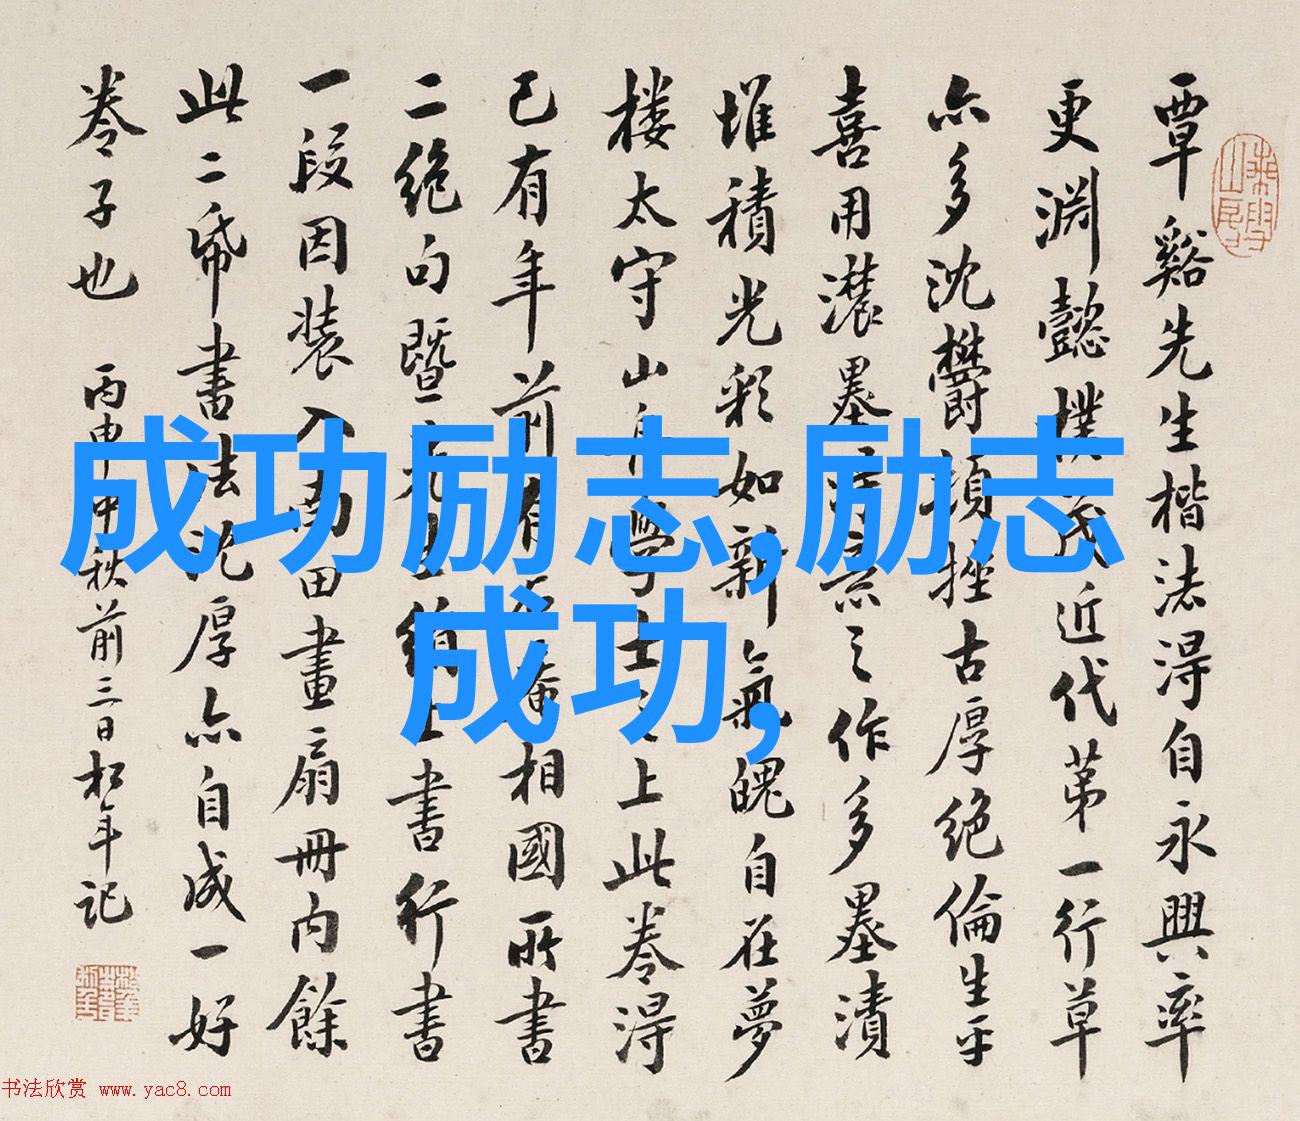 覃谿先生楷法得自永興率
更淵懿樸茂近代第一行草
亦多沈欝頓挫古厚絶倫生平
喜用濃墨之作多墨漬
堆積光彩如新氣魄自在夢
樓太守山舟學士之上此卷得
已有年前有石菴相國所書
二絶句暨上書行書
一段因裝入田畫扇冊内餘
此二帋書法沈厚亦自成一好
卷子也 丙申中秋前三日松年記
成功励志,励志
成功,
书法欣赏 www.yac8.com